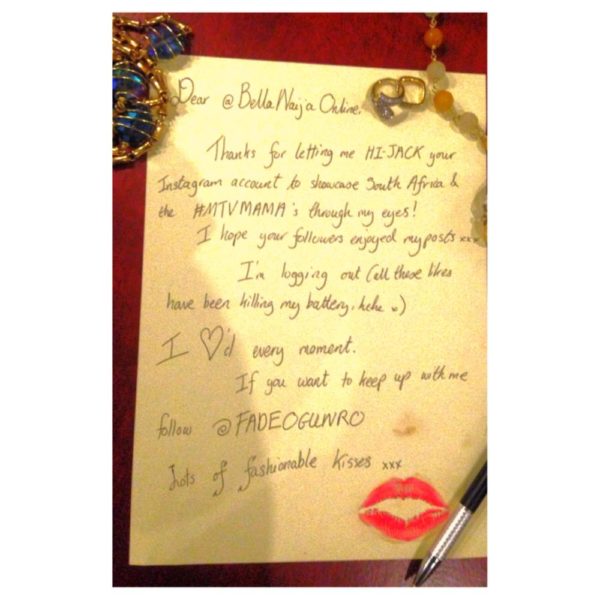 Dear @BellaNaijaOnline,
Thanks for letting me HI-JACK your
Instagram account to showcase South Africa &
the #MTVMAMA's through my eyes!
I hope your followers enjoyed my posts xxx
I'm logging out (all these likes
have been killing my battery, hehe x)
I ♡'d every moment.
If you want to keep up with me
follow @FADEOGUNRO
Lots of fashionable kisses xxx